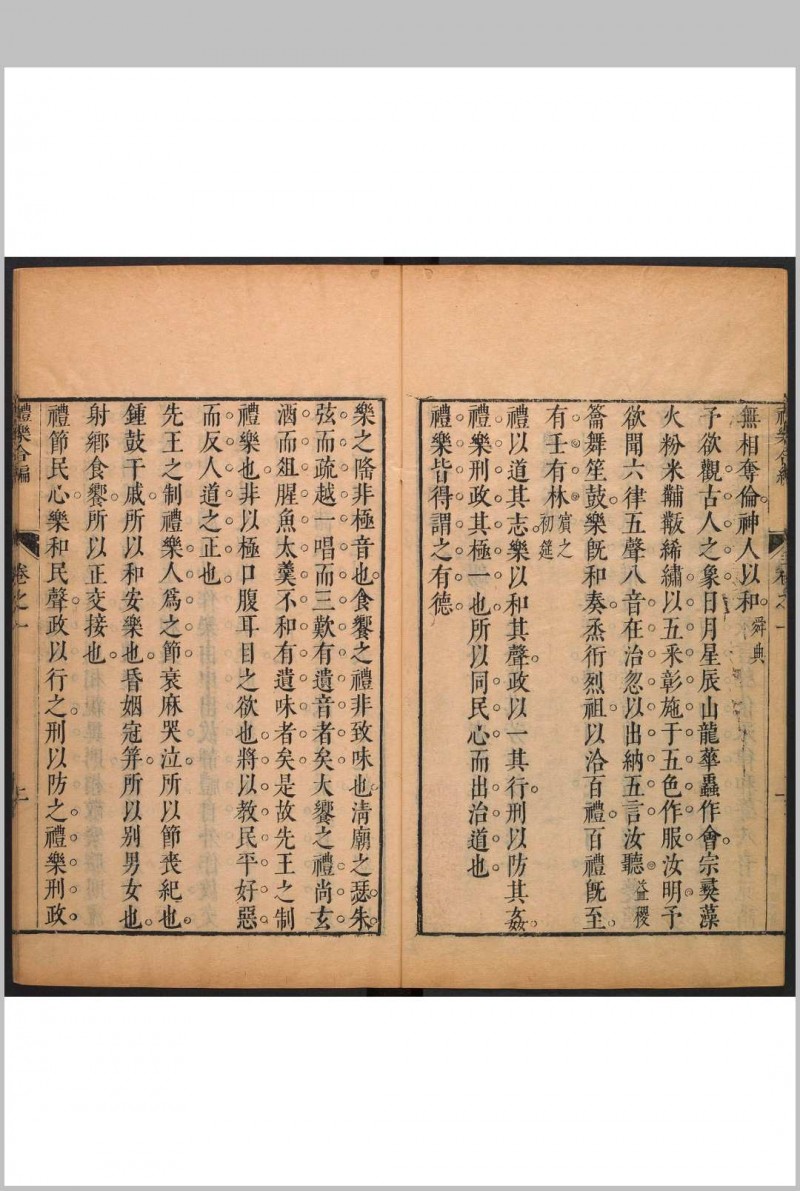 無相奪倫神人以和舜典
予欲觀古人之象日月星辰山龍華蟲作會宗彛藻
火粉米黼黻絺繡以五采彰施于五色作服汝明予
欲聞六律五聲八音在治忽以出納五言汝聽益稷
籥舞笙鼓樂旣和奏烝衎烈祖以洽百禮百禮旣至
有壬有林賓之初筵
禮以道其志樂以和其聲政以一其行刑以防其姦
禮樂刑政其極一也所以同民心而出治道也
禮樂皆得謂之有德
樂之隆非極音也食饗之禮非致味也淸廟之瑟朱
弦而疏越一唱而三歎有遺音者矣大饗之禮尚玄
酒而俎腥魚太羹不和有遺味者矣是故先王之制
禮樂也非以極口腹耳目之欲也將以教民平好惡
而反人道之正也
先王之制禮樂人爲之節衰麻哭泣所以節喪紀也
鍾鼓干戚所以和安樂也昏姻冠笄所以别男女也
射鄉食饗所以正交接也
禮節民心樂和民聲政以行之刑以防之禮樂刑政
禮樂合編 卷之一 上